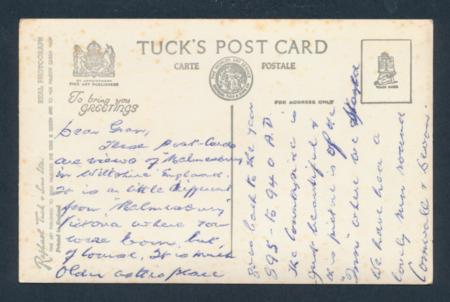 TUCK'S POST CARD
CARTE POSTALE
BY APPOINTMENT
FINE ART PUBLISHERS
To bring you
GREETINGS
FOR ADDRESS ONLY
TRADE MARK
REAL PHOTOGRAPH
Raphael Tuck & Sons Ltd.
Dear Gran,
These Post-Cards
are views of Malmesbury
in Wiltshire England.
It is an little different
from "Malmesbury"
Victoria where you
were born, but,
of course, It is much
Older as the place
goes back to the year
895-to 940 A.D.
The Countryside is
just beautiful &
this picture is of the
Inn where we stayed
We have had a
lovely run round
Cornwall & Devon.